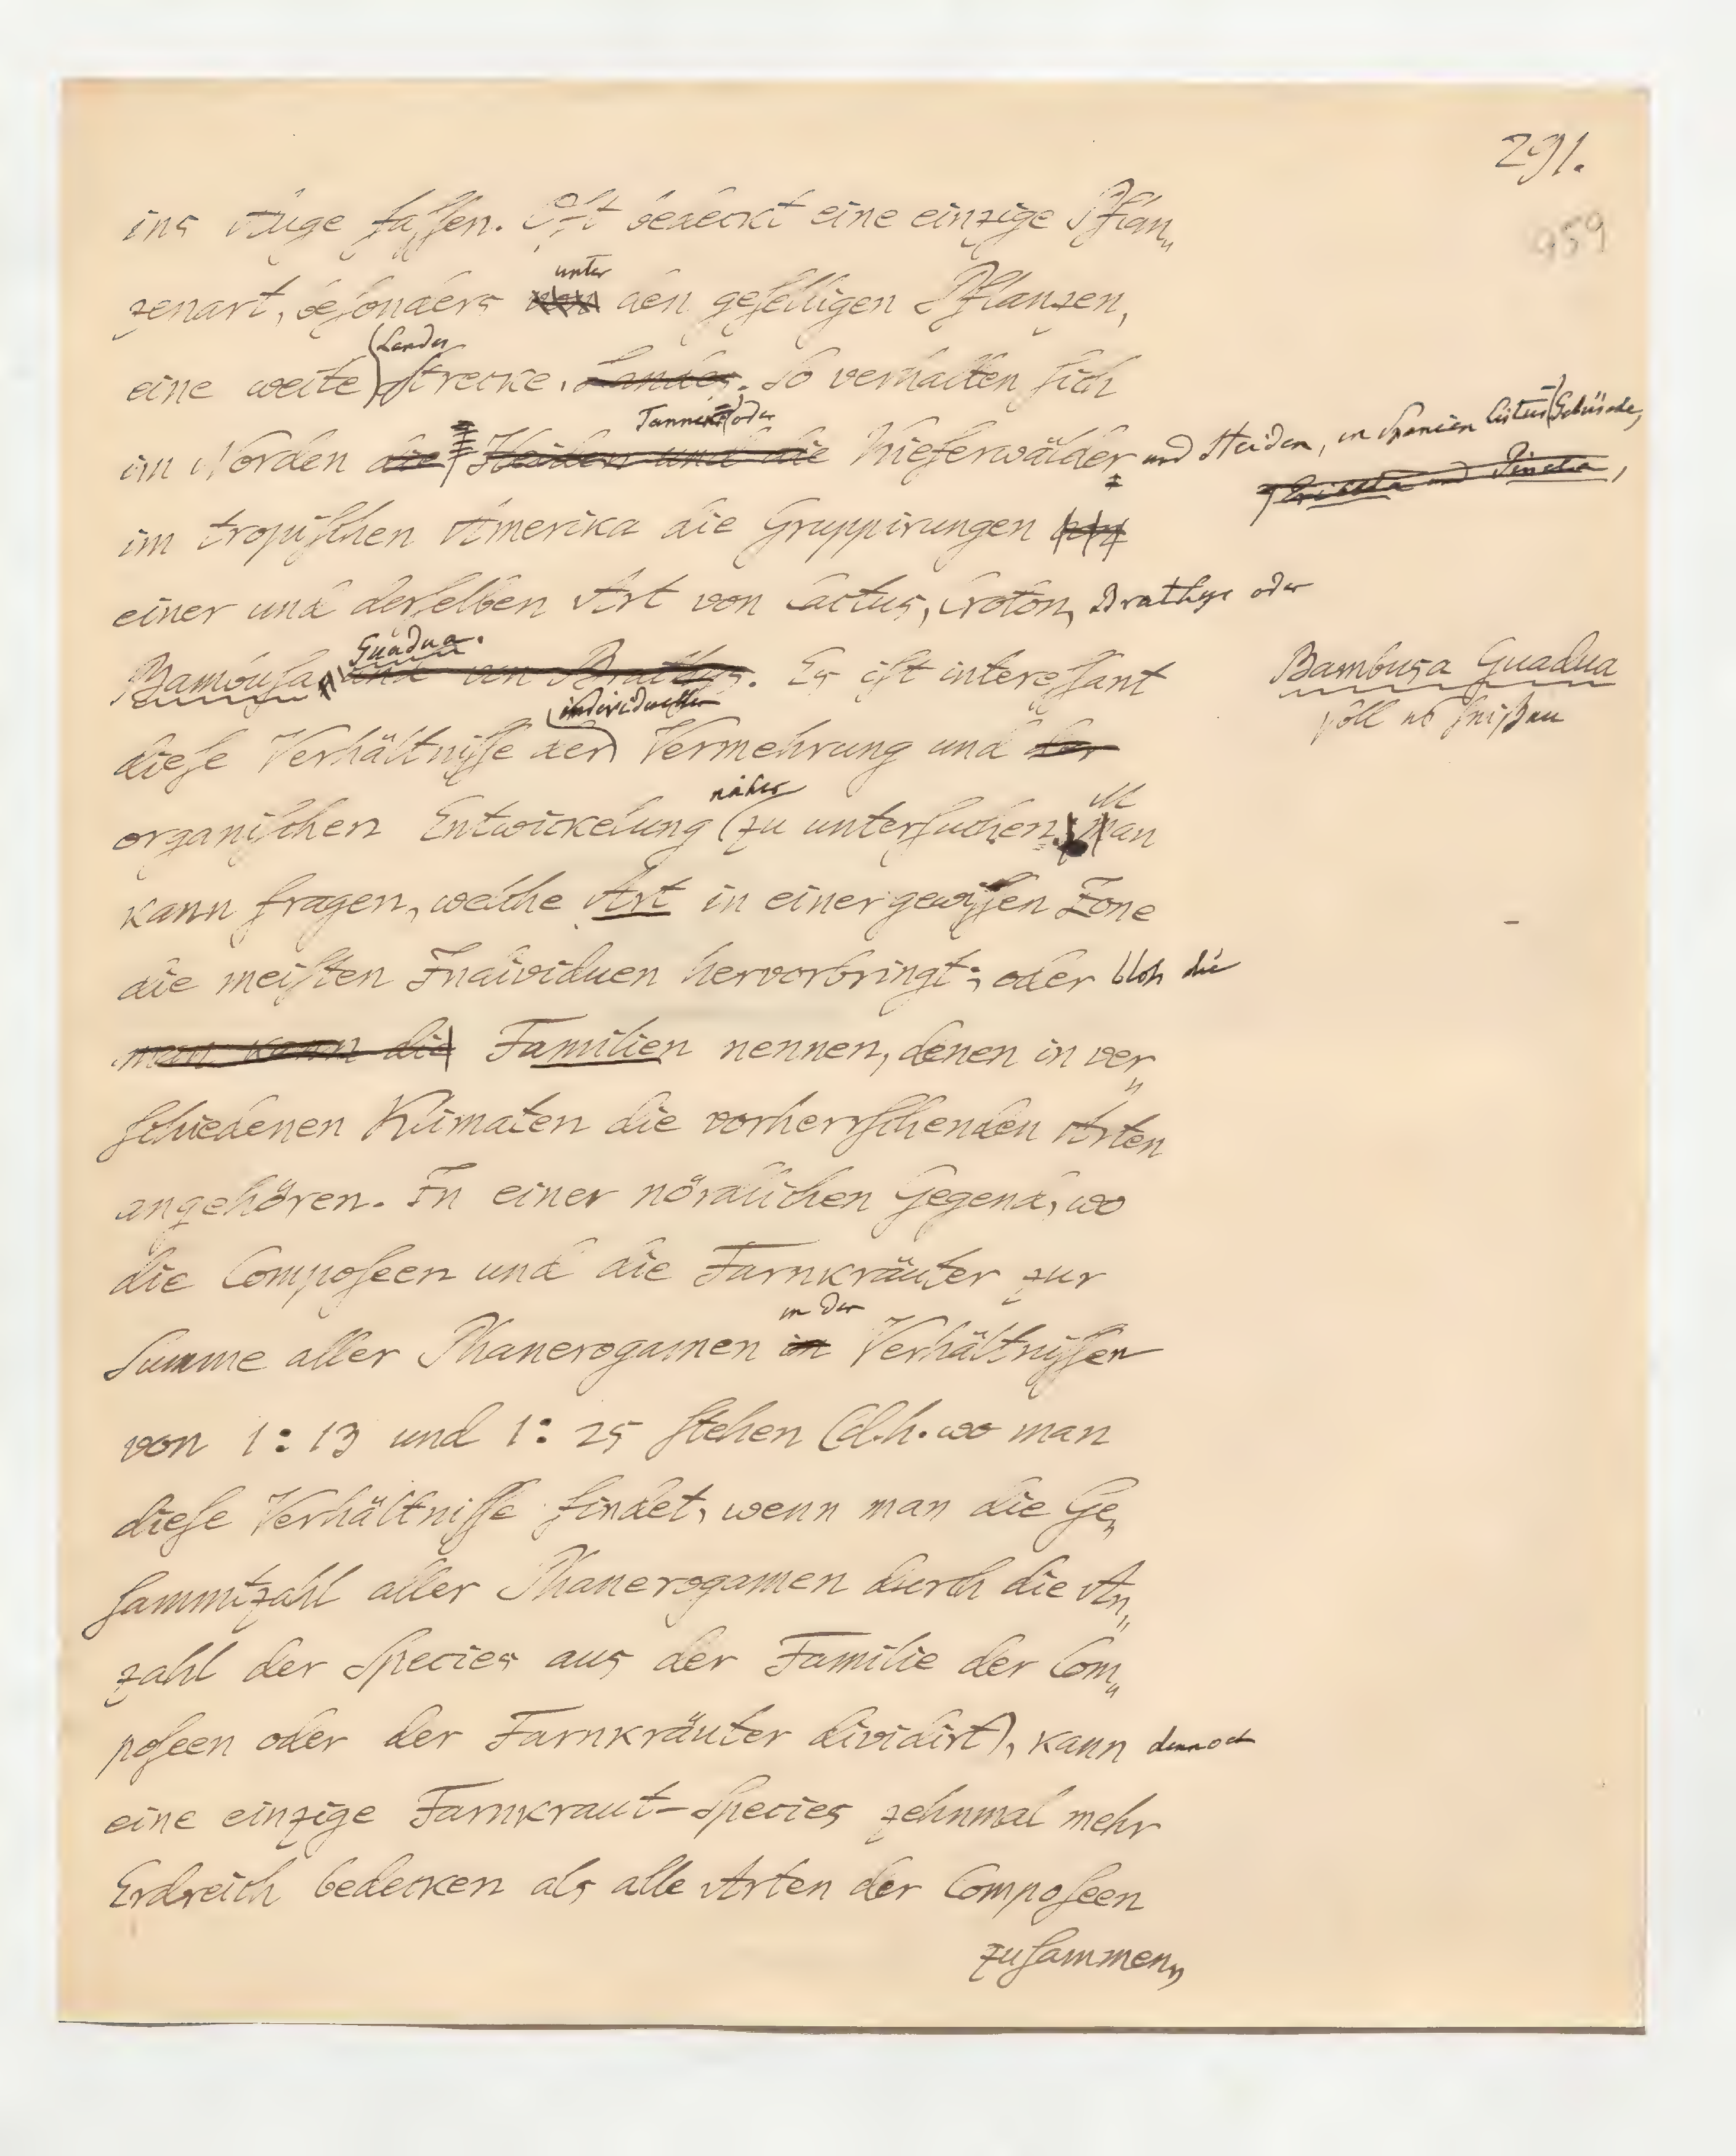 291.
959
ins Auge faſſen. Oft bedeckt eine einzige Pflan„
unter
zenart, beſonders von den geſelligen Pflanzen,
Landes
eine weite Strecke Landes. So verhalten ſich
Tannen oder
im Norden die Heiden und die Kieferwälder und Heiden, in Spanien Cistus Gebüsche,
Ericeta und Pineta,
im tropiſchen Amerika die Gruppirungen
einer und derſelben Art von Cactus, Croton, Brathys oder
Guadua.
Bambuſa und von Brathys. Es iſt intereſſant
Bambusa Guadua
ſoll es heißen
individuellen
dieſe Verhältniſſe der Vermehrung und der
näher
organiſchen Entwickelung zu unterſuchen. Man
kann fragen, welche Art in einer gewiſſen Zone
die meiſten Individuen hervorbringt; oder bloß die
man kann die Familien nennen, denen in ver„
ſchiedenen Klimaten die vorherrſchenden Arten
angehören. In einer nördlichen Gegend, wo
die Compoſeen und die Farnkräuter zur
in den
Summe aller Phanerogamen in Verhältniſſen
von 1:13 und 1:25 ſtehen (d.h. wo man
dieſe Verhältniſſe findet, wenn man die Ge„
ſammtzahl aller Phanerogamen durch die An„
zahl der Species aus der Familie der Com„
poſeen oder der Farnkräuter dividirt), kann dennoch
eine einzige Farnkraut-Species zehnmal mehr
Erdreich bedecken als alle Arten der Compoſeen
zuſammen„